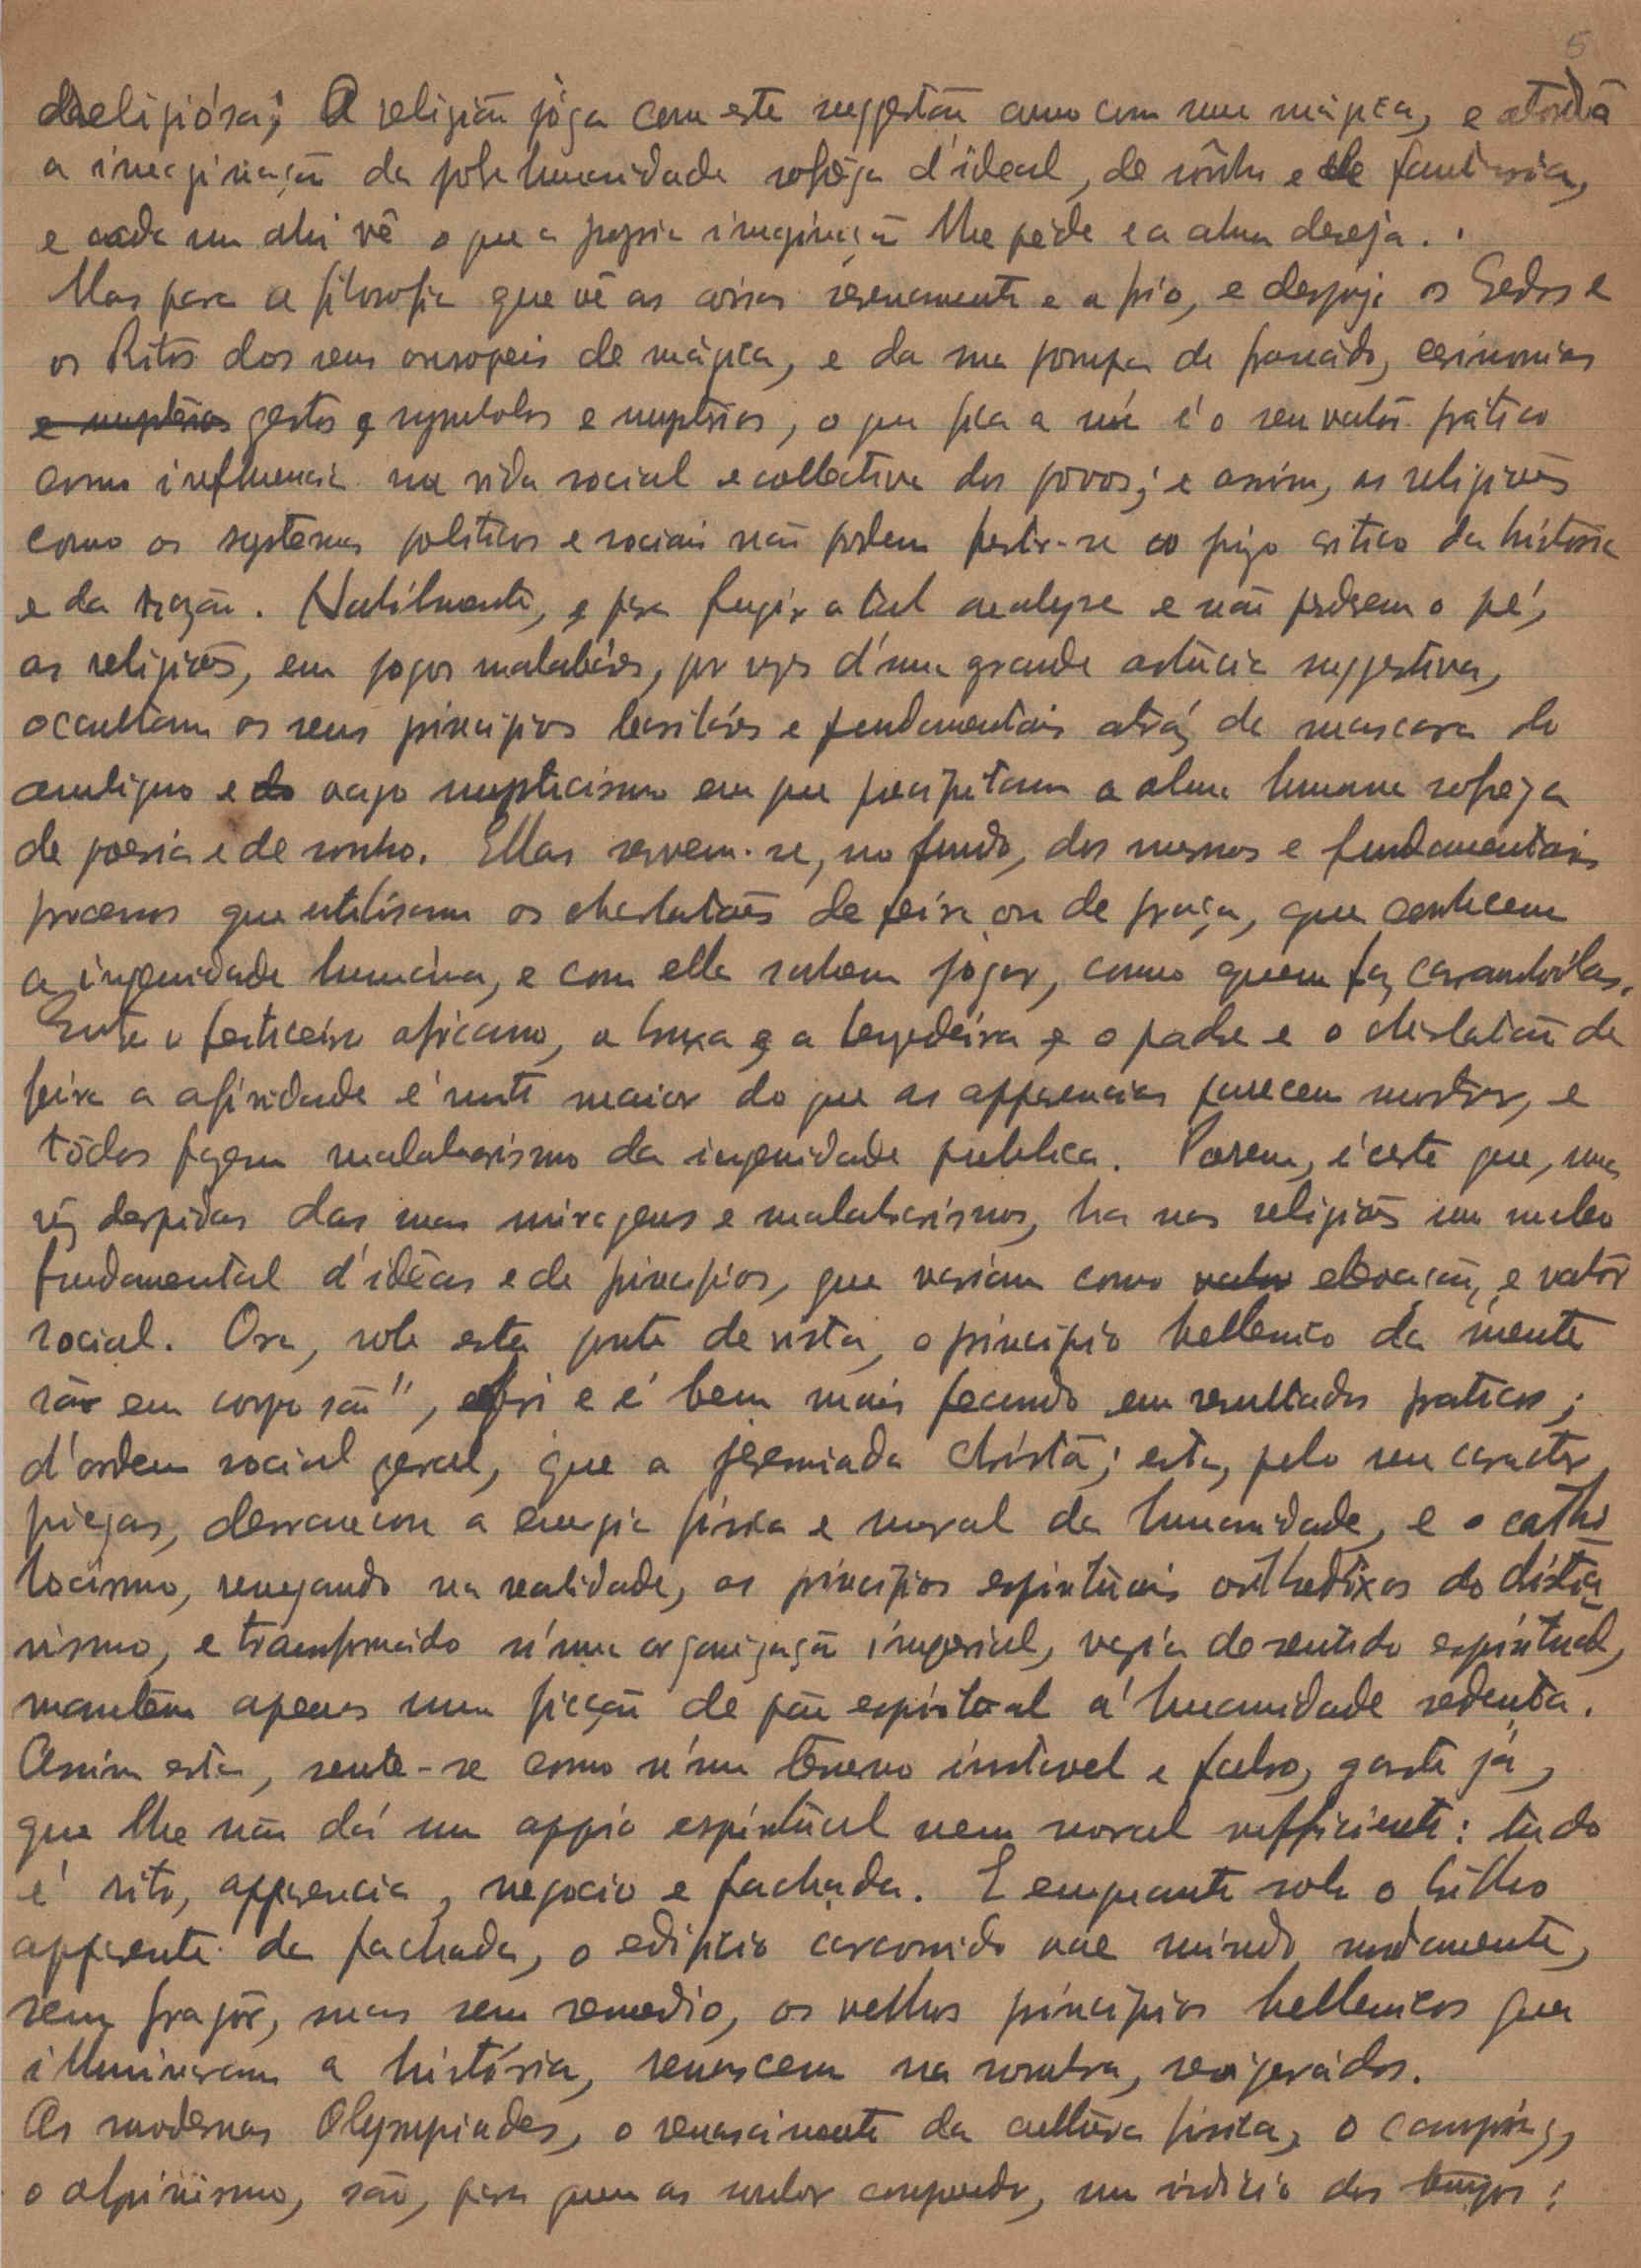 5
religiósa; A religião jóga com esta suggestão como com uma mágica, e atordôa
a imaginação da pobre humanidade sofrêga d'ideal, de sônho e de fantasia,
e cada um ahi vê o que a propria imaginação lhe péde e a alma deseja..
Mas para a filosofia que vê as coisas serenamente e a frio, e despoja os Credos e
os Ritos dos seus ouropeis de mágica, e da sua pompa de passado, cerimonias
e mysterios gestos e symbolos e mysterios, o que fica a nú é o seu valôr prático
como influencia na vida social e collectiva dos póvos; e assim, as religiões
como os systemas politicos e sociais não podem furtar-se ao juizo critico da história
e da razão. Habilmente, e para fugir a tal analyse e não perderem o pé,
as religiões, em jogos malabáres, por vezes d'uma grande astúcia suggestiva,
occultam os seus principios basiláres e fundamentais atráz da mascara do
ambiguo e do vago mysticismo em que precipitam a alma humana sofrega
de poesia e de sonho. Ellas servem-se, no fundo, dos mesmos e fundamentais
processos que utilisam os charlatães de feira ou de praça, que conhecem
a ingenuidade humâna, e com ella sabem jogar, como quem faz carambólas.
Entre o feiticeiro africano, a bruxa e a benzedeira e o padre e o charlatão de
feira a afinidade é muito maior do que as apparencias parecem mostrar, e
tôdos fazem malabarismo da ingenuidade publica. Porem, é certo que, uma
vêz despidas das suas miragens e malabarismos, ha nas religiões um nucleo
fundamental d'idêas e de principios, que variam como valor elevação, e valôr
social. Ora, sob este ponto de vista, o principio hellenico da "mente
sã em corpo são", foi e é bem mais fecundo em resultados praticos;
d'ordem social geral, que a jeremiada christã; esta, pelo seu caracter
piegas, derrancou a energia fisica e moral da humanidade, e o catho
locismo, renegando na realidade, os principios espirituais orthodoxos do christia
nismo, e transformado n'uma organização imperial, vazia de sentido espiritual,
mantêm apenas uma ficção de pão espiritual á humanidade sedenta.
Assim esta, sente-se como n'um terreno instavel e falso, gasto já,
que lhe não dá um appoio espiritual nem moral sufficiente: tudo
é rito, apparencia, negocio e fachada. E emquanto sob o brilho
apparente da fachada, o edificio carcomido vae ruindo, mudamente,
sem fragôr, mas sem remedio, os velhos principios hellenicos que
illuminaram a história, renascem na sombra, revigorádos.
As modernas Olympiades, o renascimento da cultura fisica, o camping,
o alpinismo, são, para quem as souber compreender, um indicio dos tempos: